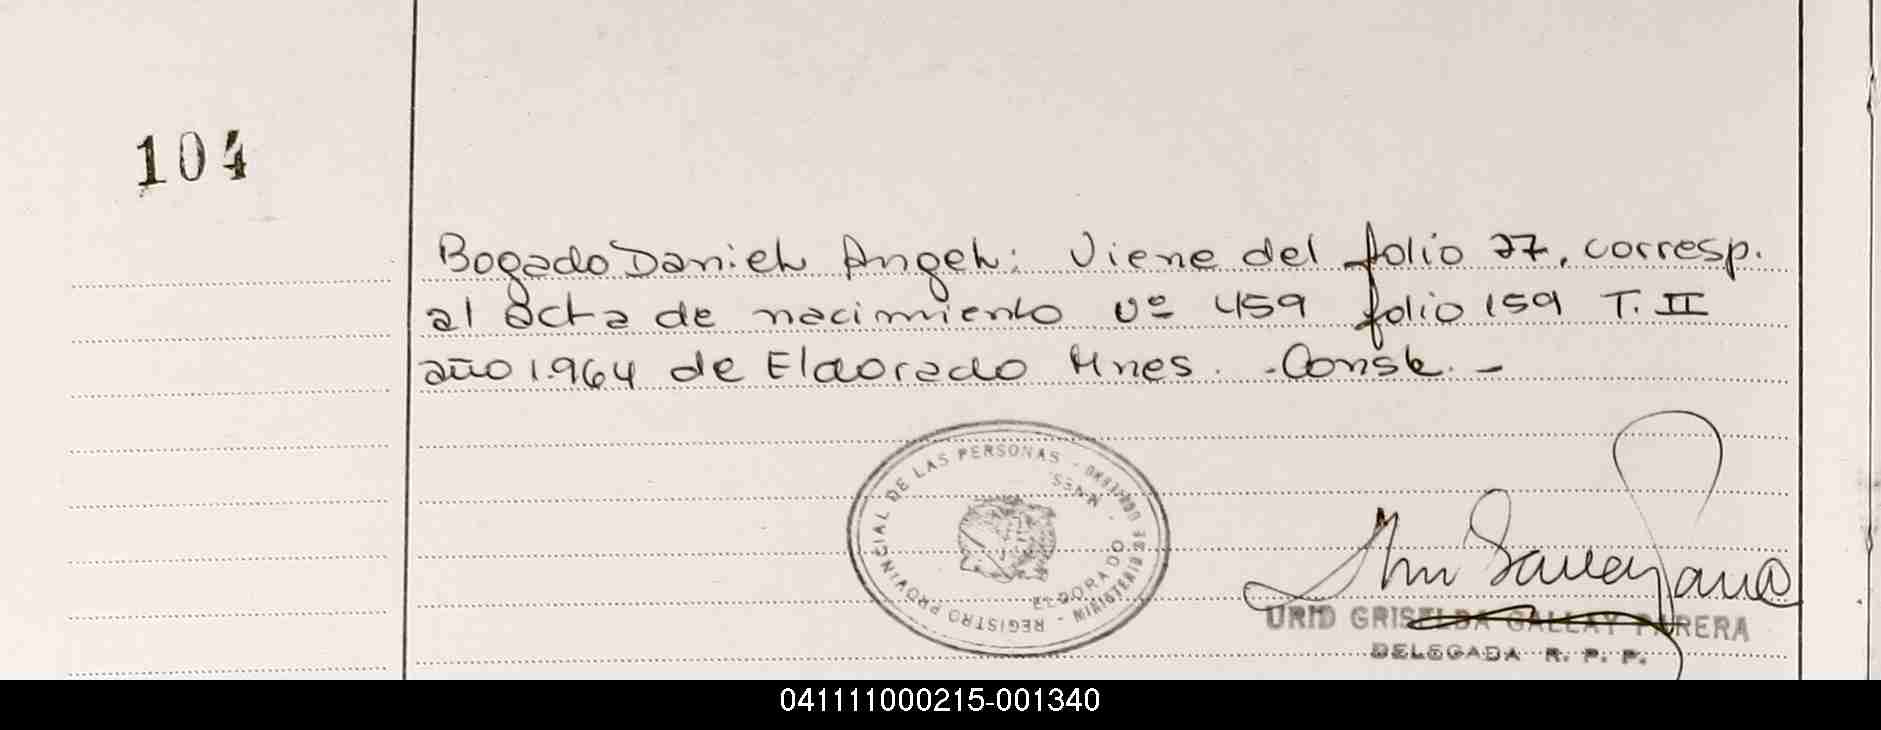 104
Bogado Daniel Angel: Viene del folio 27, corresp.
al acta de nacimiento Nº 459 folio 159 T. II
año 1.964 de Eldorado Mnes. - Conste. -
REGISTRO PROVINCIAL DE LAS PERSONAS - MINISTERIO DE GOBIERNO
ELDORADO - MNES.
URID GRISELDA GALLAY PARERA
DELEGADA R. P. P.
041111000215-001340